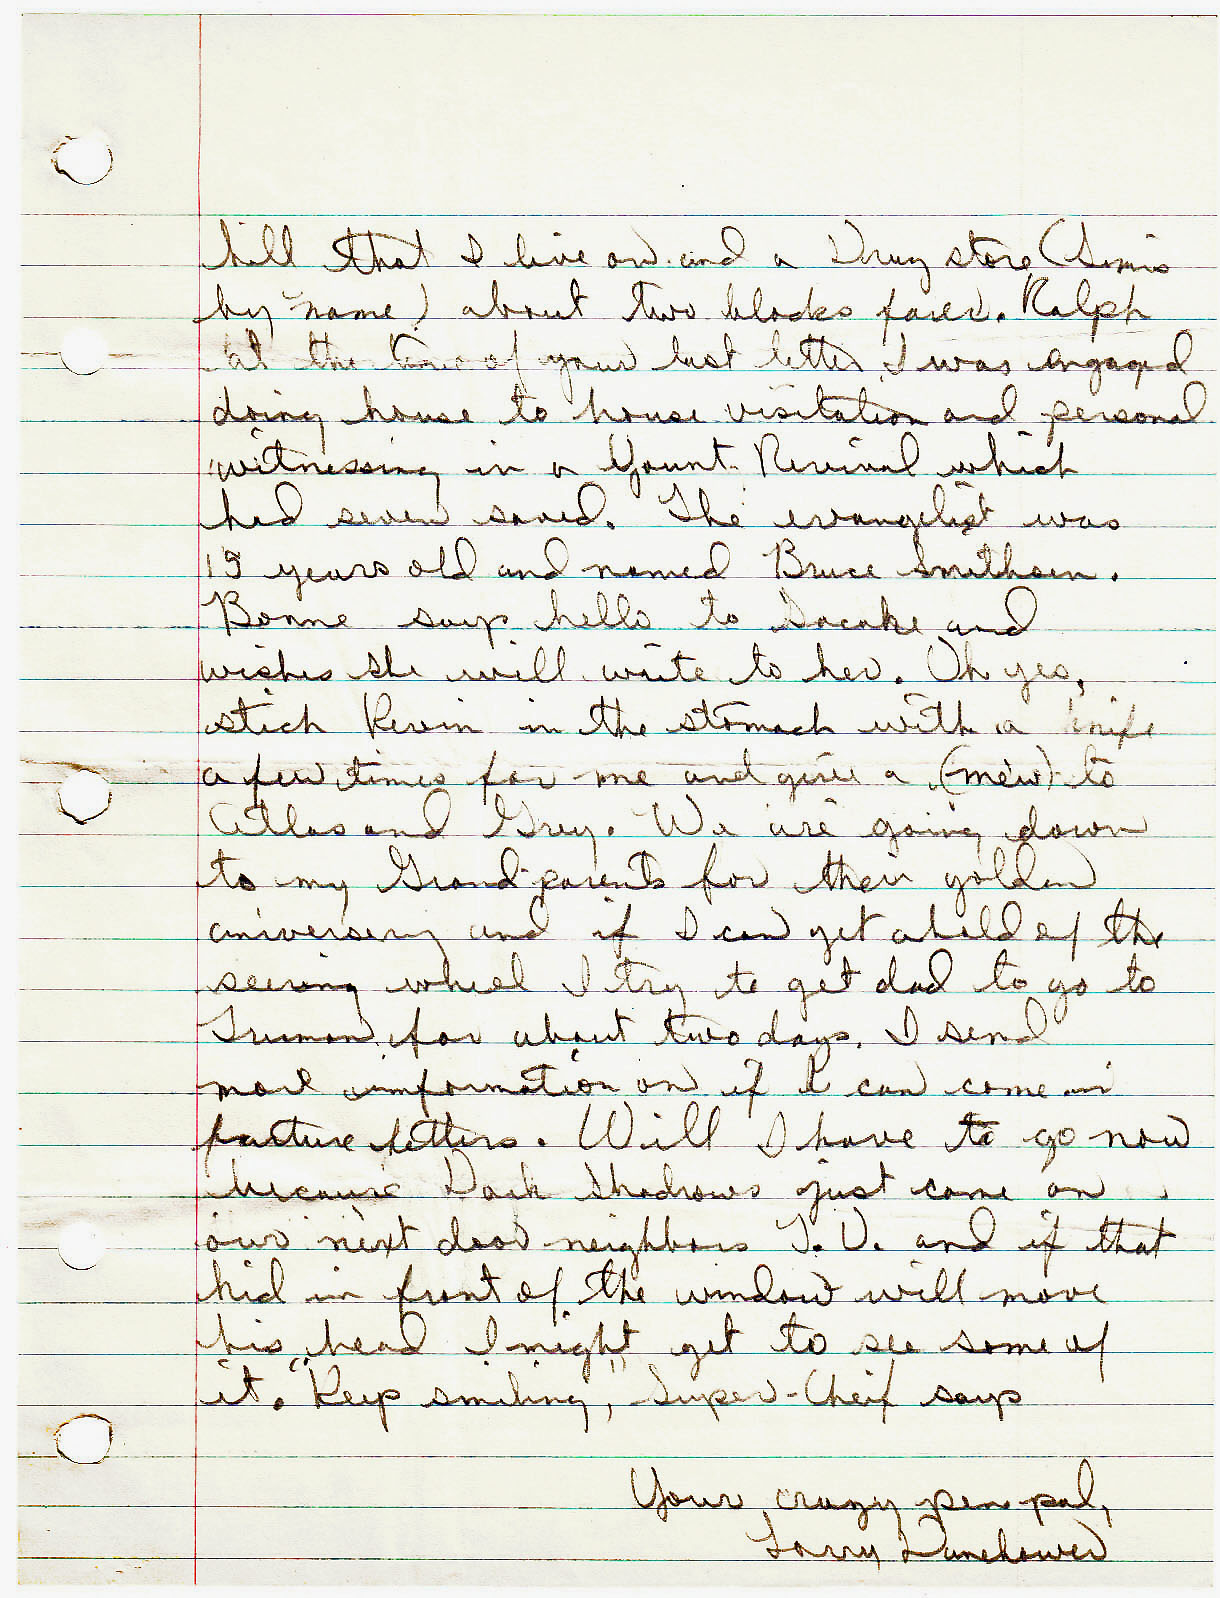 hill that I live on and a Drug store (Simis
by name) about two blocks farer. Ralph
at the time of your last letter I was engaged
doing house to house visitation and personal
witnessing in a Yount Revival which
had seven saved. The evangelist was
19 years old and named Bruce Smithsen.
Bonne says hello to and
wishes she will write to her. Oh yes,
stick Kevin in the stomach with a knife
a few times for me and give a (mew) to
Atlas and Grey. We are going down
to my Grand-parents for their golden
aniversery and if I can get ahold of the
seering wheel I try to get dad to go to
Truman for about two days. I send
more imformation on if I can come in
furture letters. Will I have to go now
because Dark Shadrows just came on
our next door neighbors T.V. and if that
kid in front of the window will move
his head I might get to see some of
it. "Keep smiling," Super-Cheif says
Your crazy pen pal,
Larry Dunehower